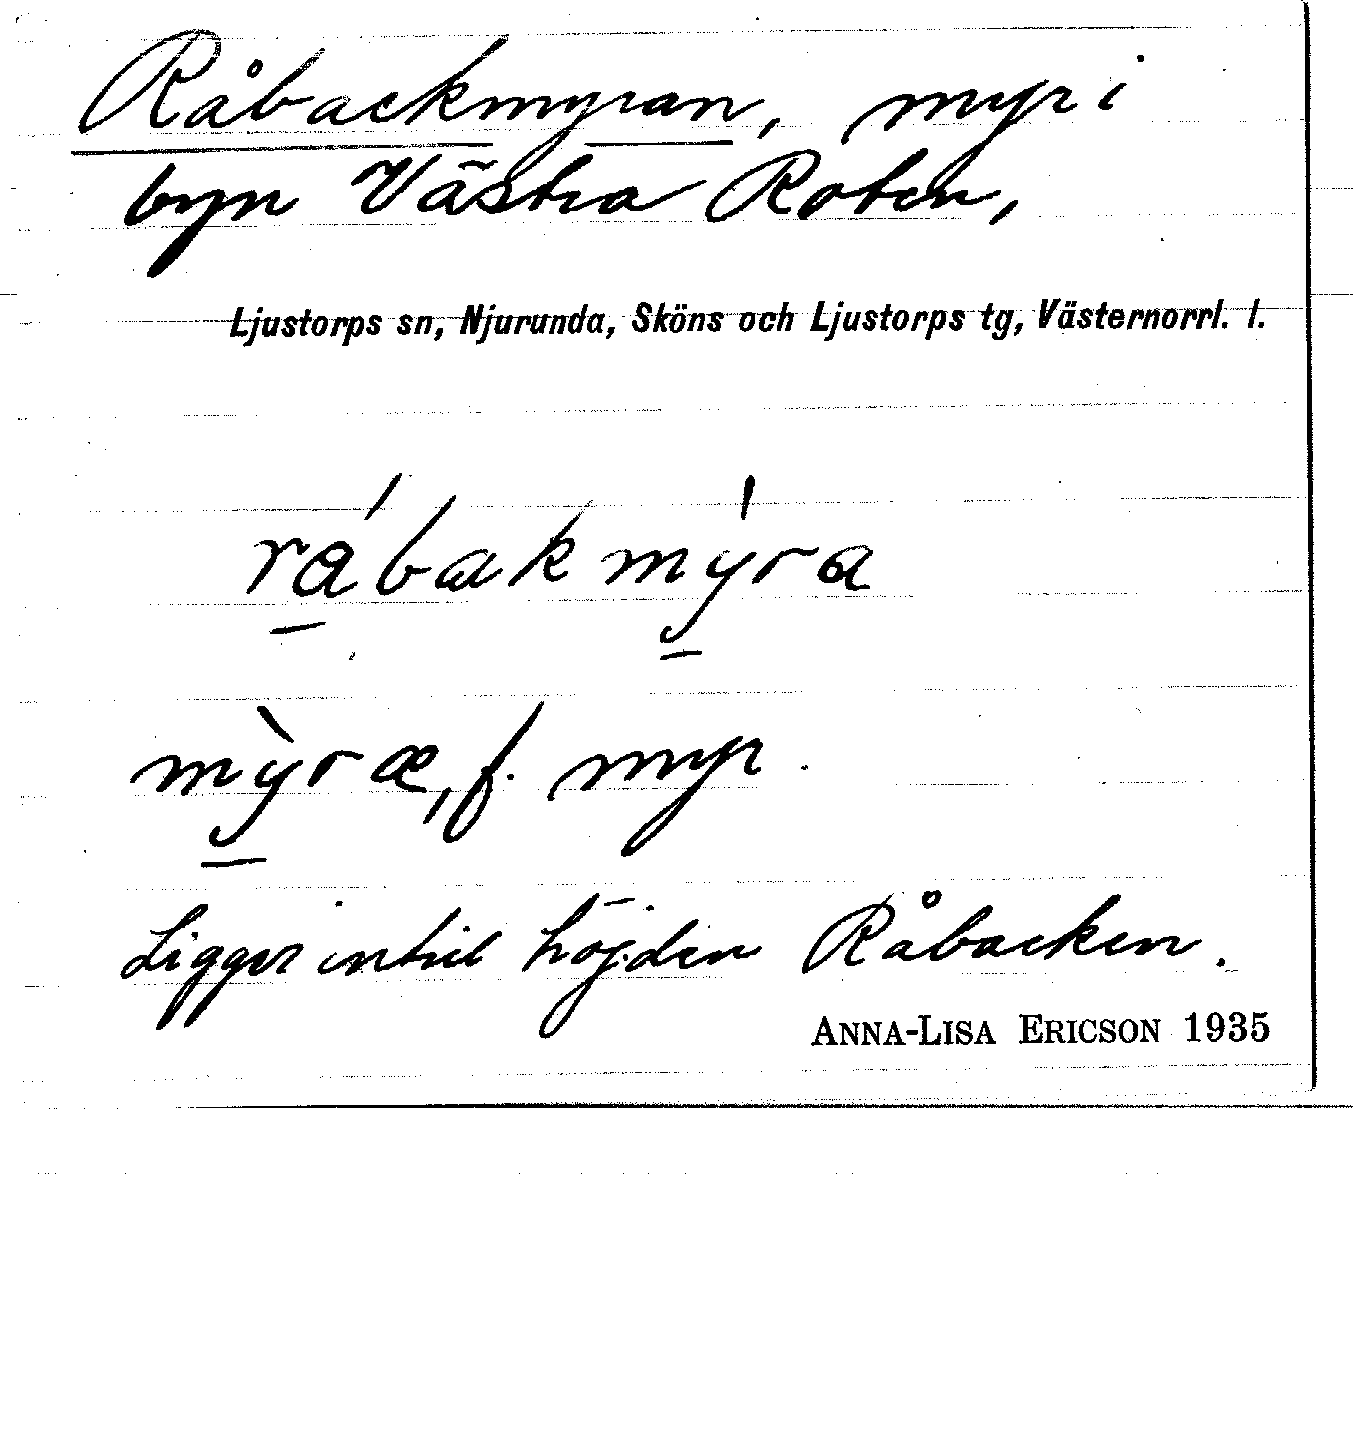 Råbackmyran, myr i
byn Västra Roten,
Ljustorps sn, Njurunda, Sköns och Ljustorps tg, Västernorrl. l.
rábakmýra
mỳræ, f. myr.
Ligger intill höjden Råbacken.
ANNA-LISA ERICSON 1935